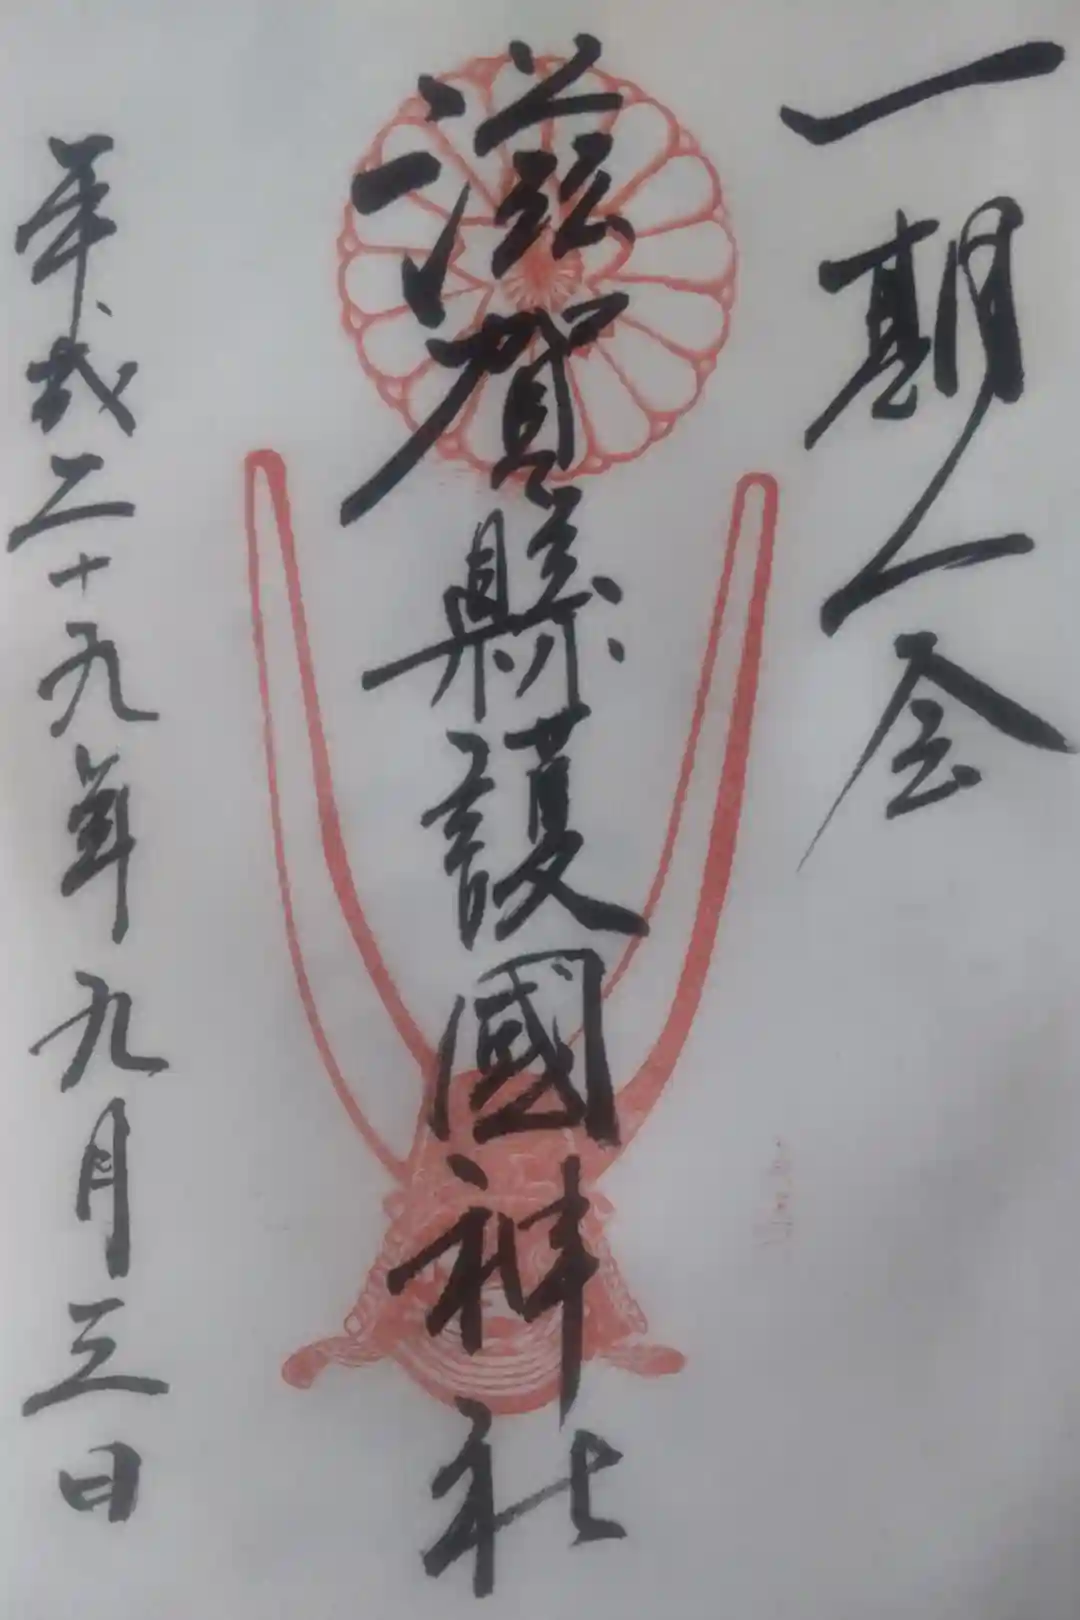 一期一会
滋賀縣護國神社
平成二十九年九月三日